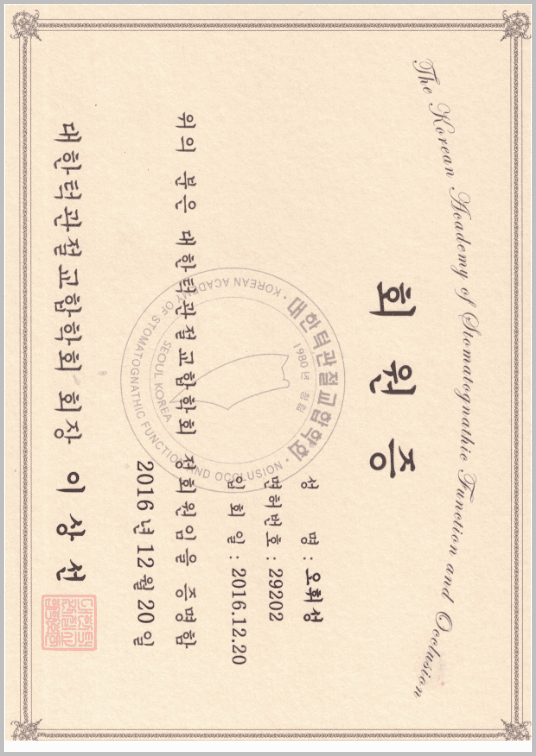 The Korean Academy of Stomatognathic Function and Occlusion
회원증
성 명 : 오휘성
면허번호 : 29202
입 회 일 : 2016.12.20
대한턱관절교합학회
1980년 창설
KOREAN ACADEMY OF STOMATOGNATHIC FUNCTION AND OCCLUSION
SEOUL KOREA
위의 분은 대한턱관절교합학회 정회원임을 증명함
2016년 12월 20일
대한턱관절교합학회 회장 이상선